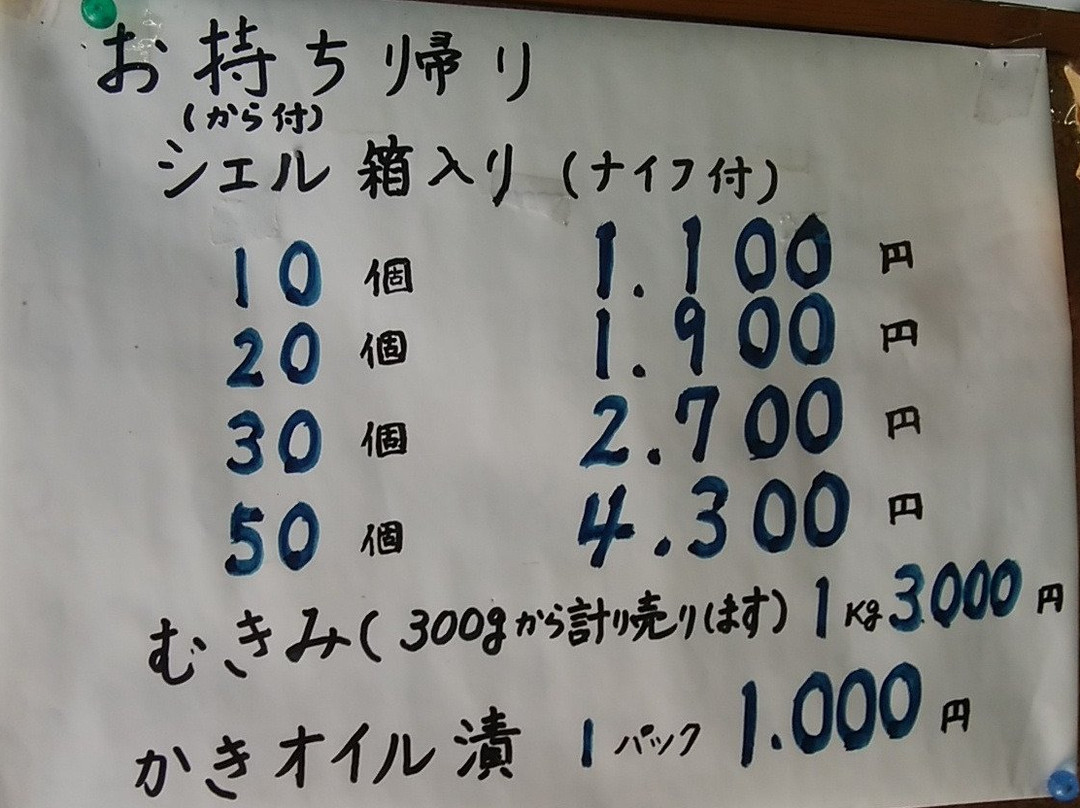 お持ち帰り
(から付)
シェル 箱入り (ナイフ付)
10 個 1.100 円
20 個 1.900 円
30 個 2.700 円
50 個 4.300 円
むきみ( 300gから計り売りします) 1 Kg 3.000 円
かきオイル漬 1 パック 1.000 円